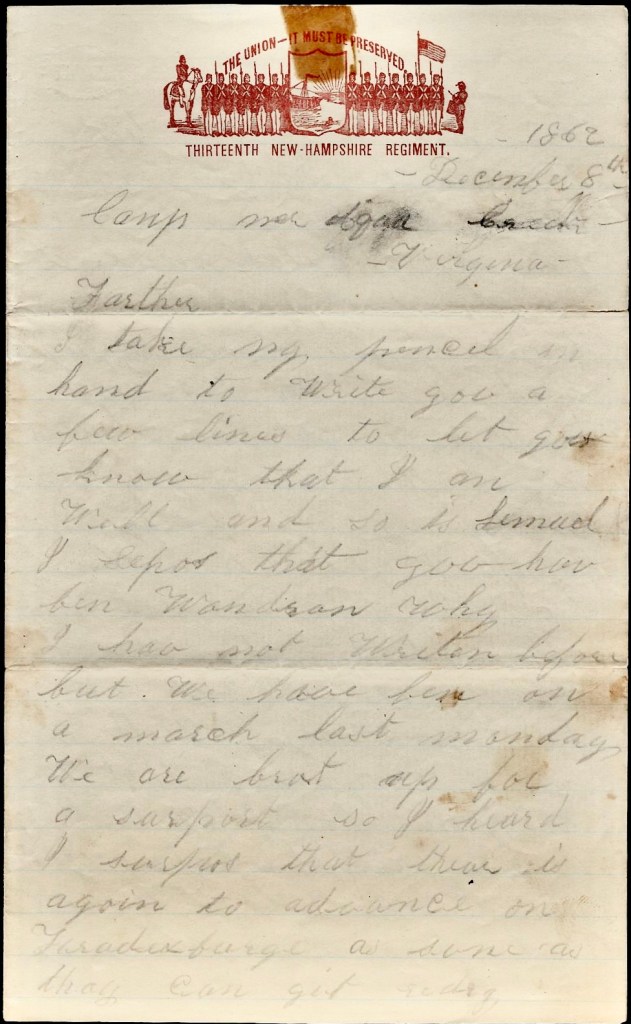 THE UNION - IT MUST BE PRESERVED
THIRTEENTH NEW-HAMPSHIRE REGIMENT.
- 1862
- December 8th -
Camp ner Aqua Creek -
- Virgina -
Farther
I take my pencel in
hand to Write you a
few lines to let you
know that I am
Well and so is Lemuel
I sepos that you hav
ben Wondran Why
I hav not Writen before
but We have ben on
a march last monday
We are brot up for
a surport so I heard
I surpos that thear is
agoin to advance on
Faradexburge as sune as
thay can git redy